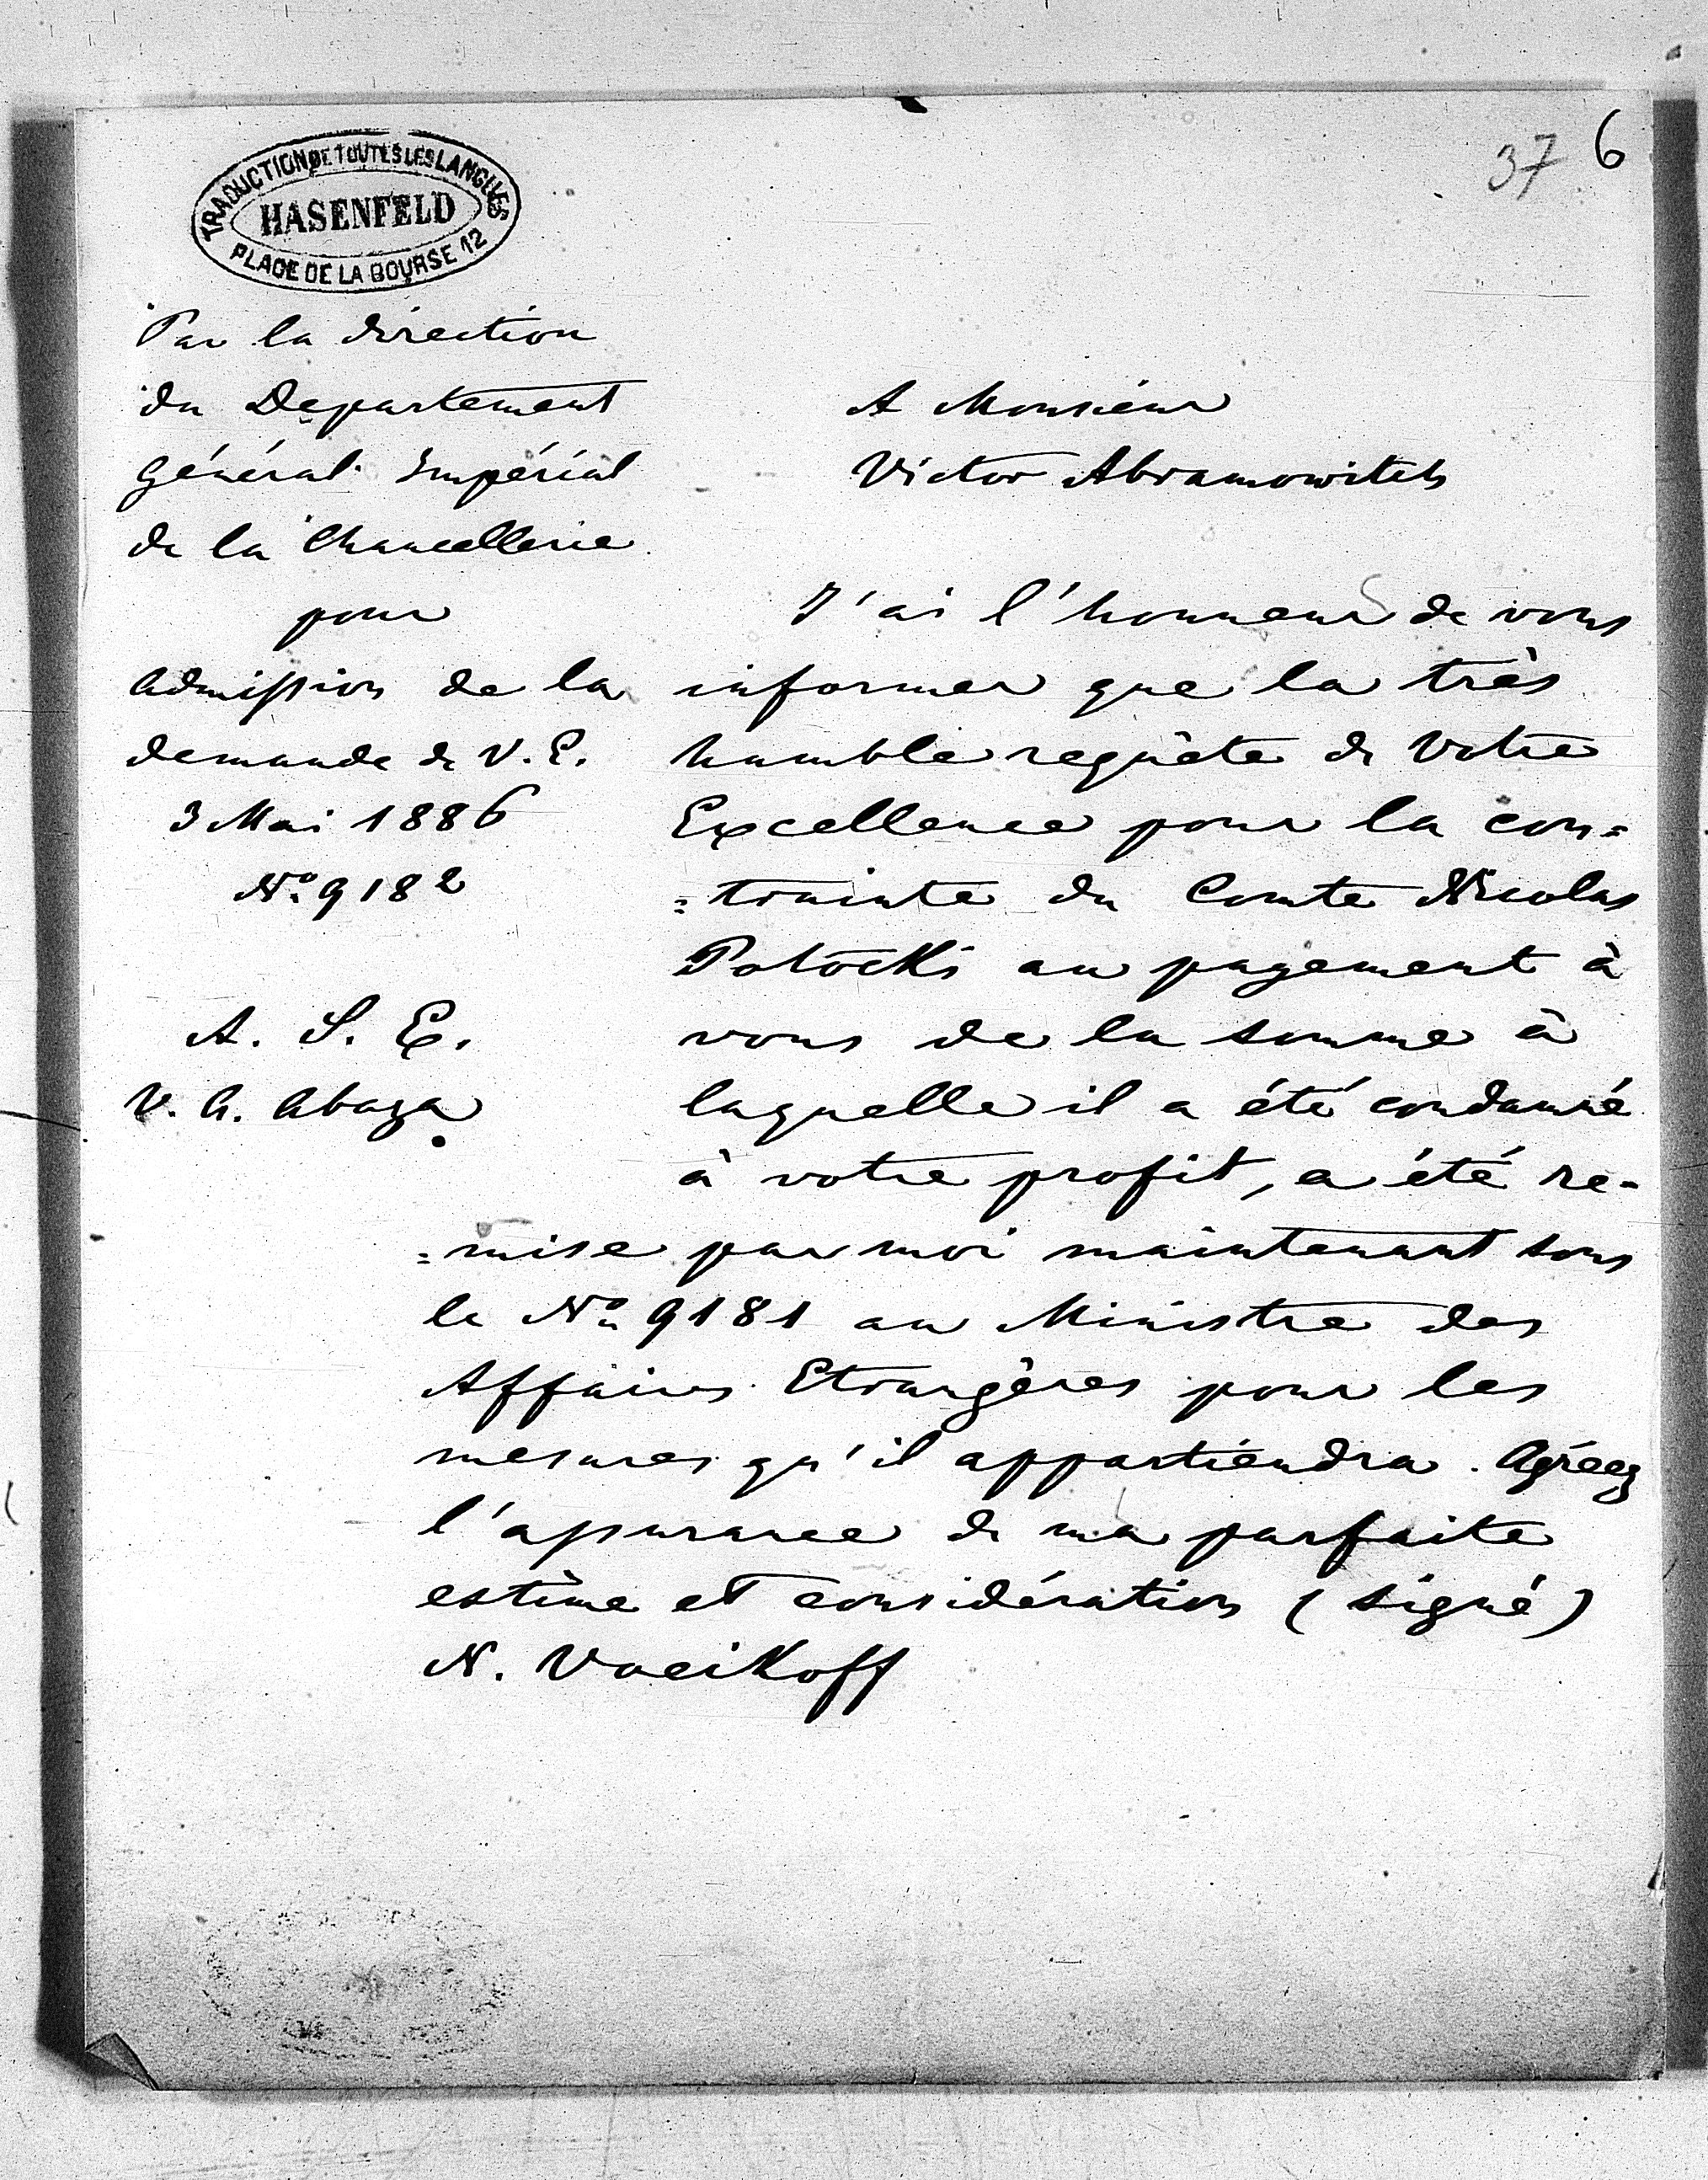 37 6
TRADUCTION DE TOUTES LES LANGUES
HASENFELD
PLACE DE LA BOURSE 12
Par la direction
du Departement
Général Impérial
de la Chancellerie
pour
admission de la
demande de V. E.
3 Mai 1886
No. 9182
A. S. E.
V. A. Abaza
A Monsieur
Victor Abramowitch
J'ai l'honneur de vous
informer que la très
humble requète de Votre
Excellence pour la con=
=trainte du Comte Nicolas
Potocki au pagement à
vous de la somme à
laquelle il a été condamné
à votre profit, a été re-
=mise par moi maintenant sous
le No 9181 au Ministre des
Affaires Etrangères pour les
mesures qu'il appartiendra. Agréez
l'assurance de ma parfaite
estime et considération (signé)
N. Voeikoff